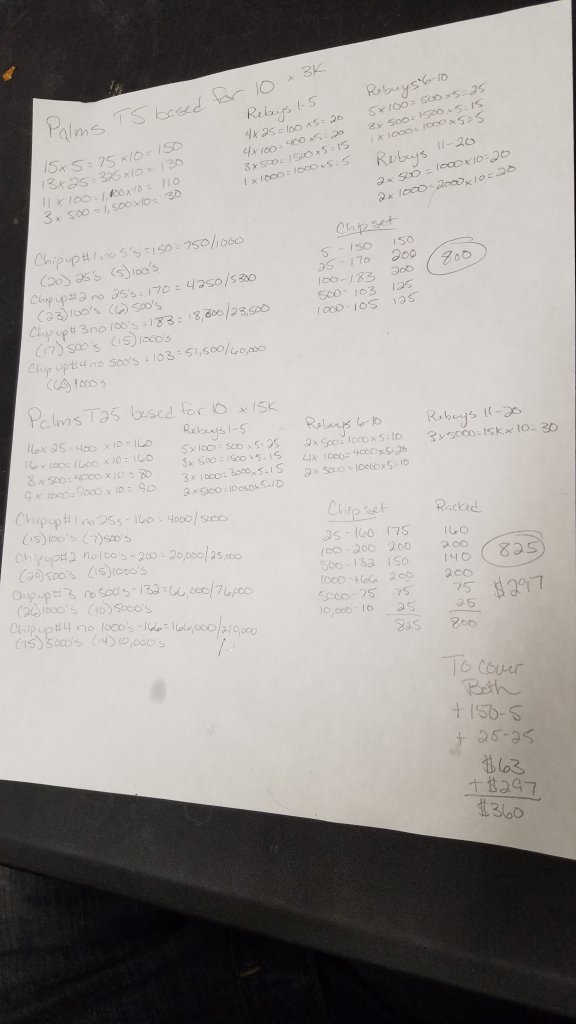 Palms T5 based for 10 x 3K
15 x 5 = 75 x 10 = 150
13 x 25 = 325 x 10 = 130
11 x 100 = 1,100 x 10 = 110
3 x 500 = 1,500 x 10 = 30
Rebuys 1-5
4 x 25 = 100 x 5 = 20
4 x 100 = 400 x 5 = 20
3 x 500 = 1500 x 5 = 15
1 x 1000 = 1000 x 5 = 5
Rebuys 6-10
5 x 100 = 500 x 5 = 25
3 x 500 = 1500 x 5 = 15
1 x 1000 = 1000 x 5 = 5
Rebuys 11-20
2 x 500 = 1000 x 10 = 20
2 x 1000 = 2000 x 10 = 20
Chip up #1 no 5's = 150 = 750/1000
(20) 25's (5) 100's
Chip up #2 no 25's = 170 = 4250/5300
(23) 100's (6) 500's
Chip up #3 no 100's = 183 = 18,300/23,500
(17) 500's (15) 1000's
Chip up #4 no 500's = 103 = 51,500/60,000
(60) 1000's
Chip set
5 - 150 150
25 - 170 200
100 - 183 200
500 - 103 125
1000 - 105 125
800
Palms T25 based for 10 x 15K
16 x 25 = 400 x 10 = 160
16 x 100 = 1600 x 10 = 160
8 x 500 = 4000 x 10 = 80
9 x 1000 = 9000 x 10 = 90
Rebuys 1-5
5 x 100 = 500 x 5 = 25
3 x 500 = 1500 x 5 = 15
3 x 1000 = 3000 x 5 = 15
2 x 5000 = 10000 x 5 = 10
Rebuys 6-10
2 x 500 = 1000 x 5 = 10
4 x 1000 = 4000 x 5 = 20
2 x 5000 = 10000 x 5 = 10
Rebuys 11-20
3 x 5000 = 15K x 10 = 30
Chip up #1 no 25s - 160 = 4000/5000
(15) 100's (7) 500's
Chip up #2 no 100's - 200 = 20,000/25,000
(20) 500's (15) 1000's
Chip up #3 no 500's - 132 = 66,000/76,000
(26) 1000's (10) 5000's
Chip up #4 no 1000's - 166 = 166,000/210,000
(14) 10,000's
Chip set
25 - 160 175
100 - 200 200
500 - 132 150
1000 - 166 200
5000 - 75 75
10,000 - 10 25
825
Racked
160
200
140
200
75
25
800
825
$297
To cover
Both
+ 150 - 5
+ 25 - 25
$63
+ $297
$360